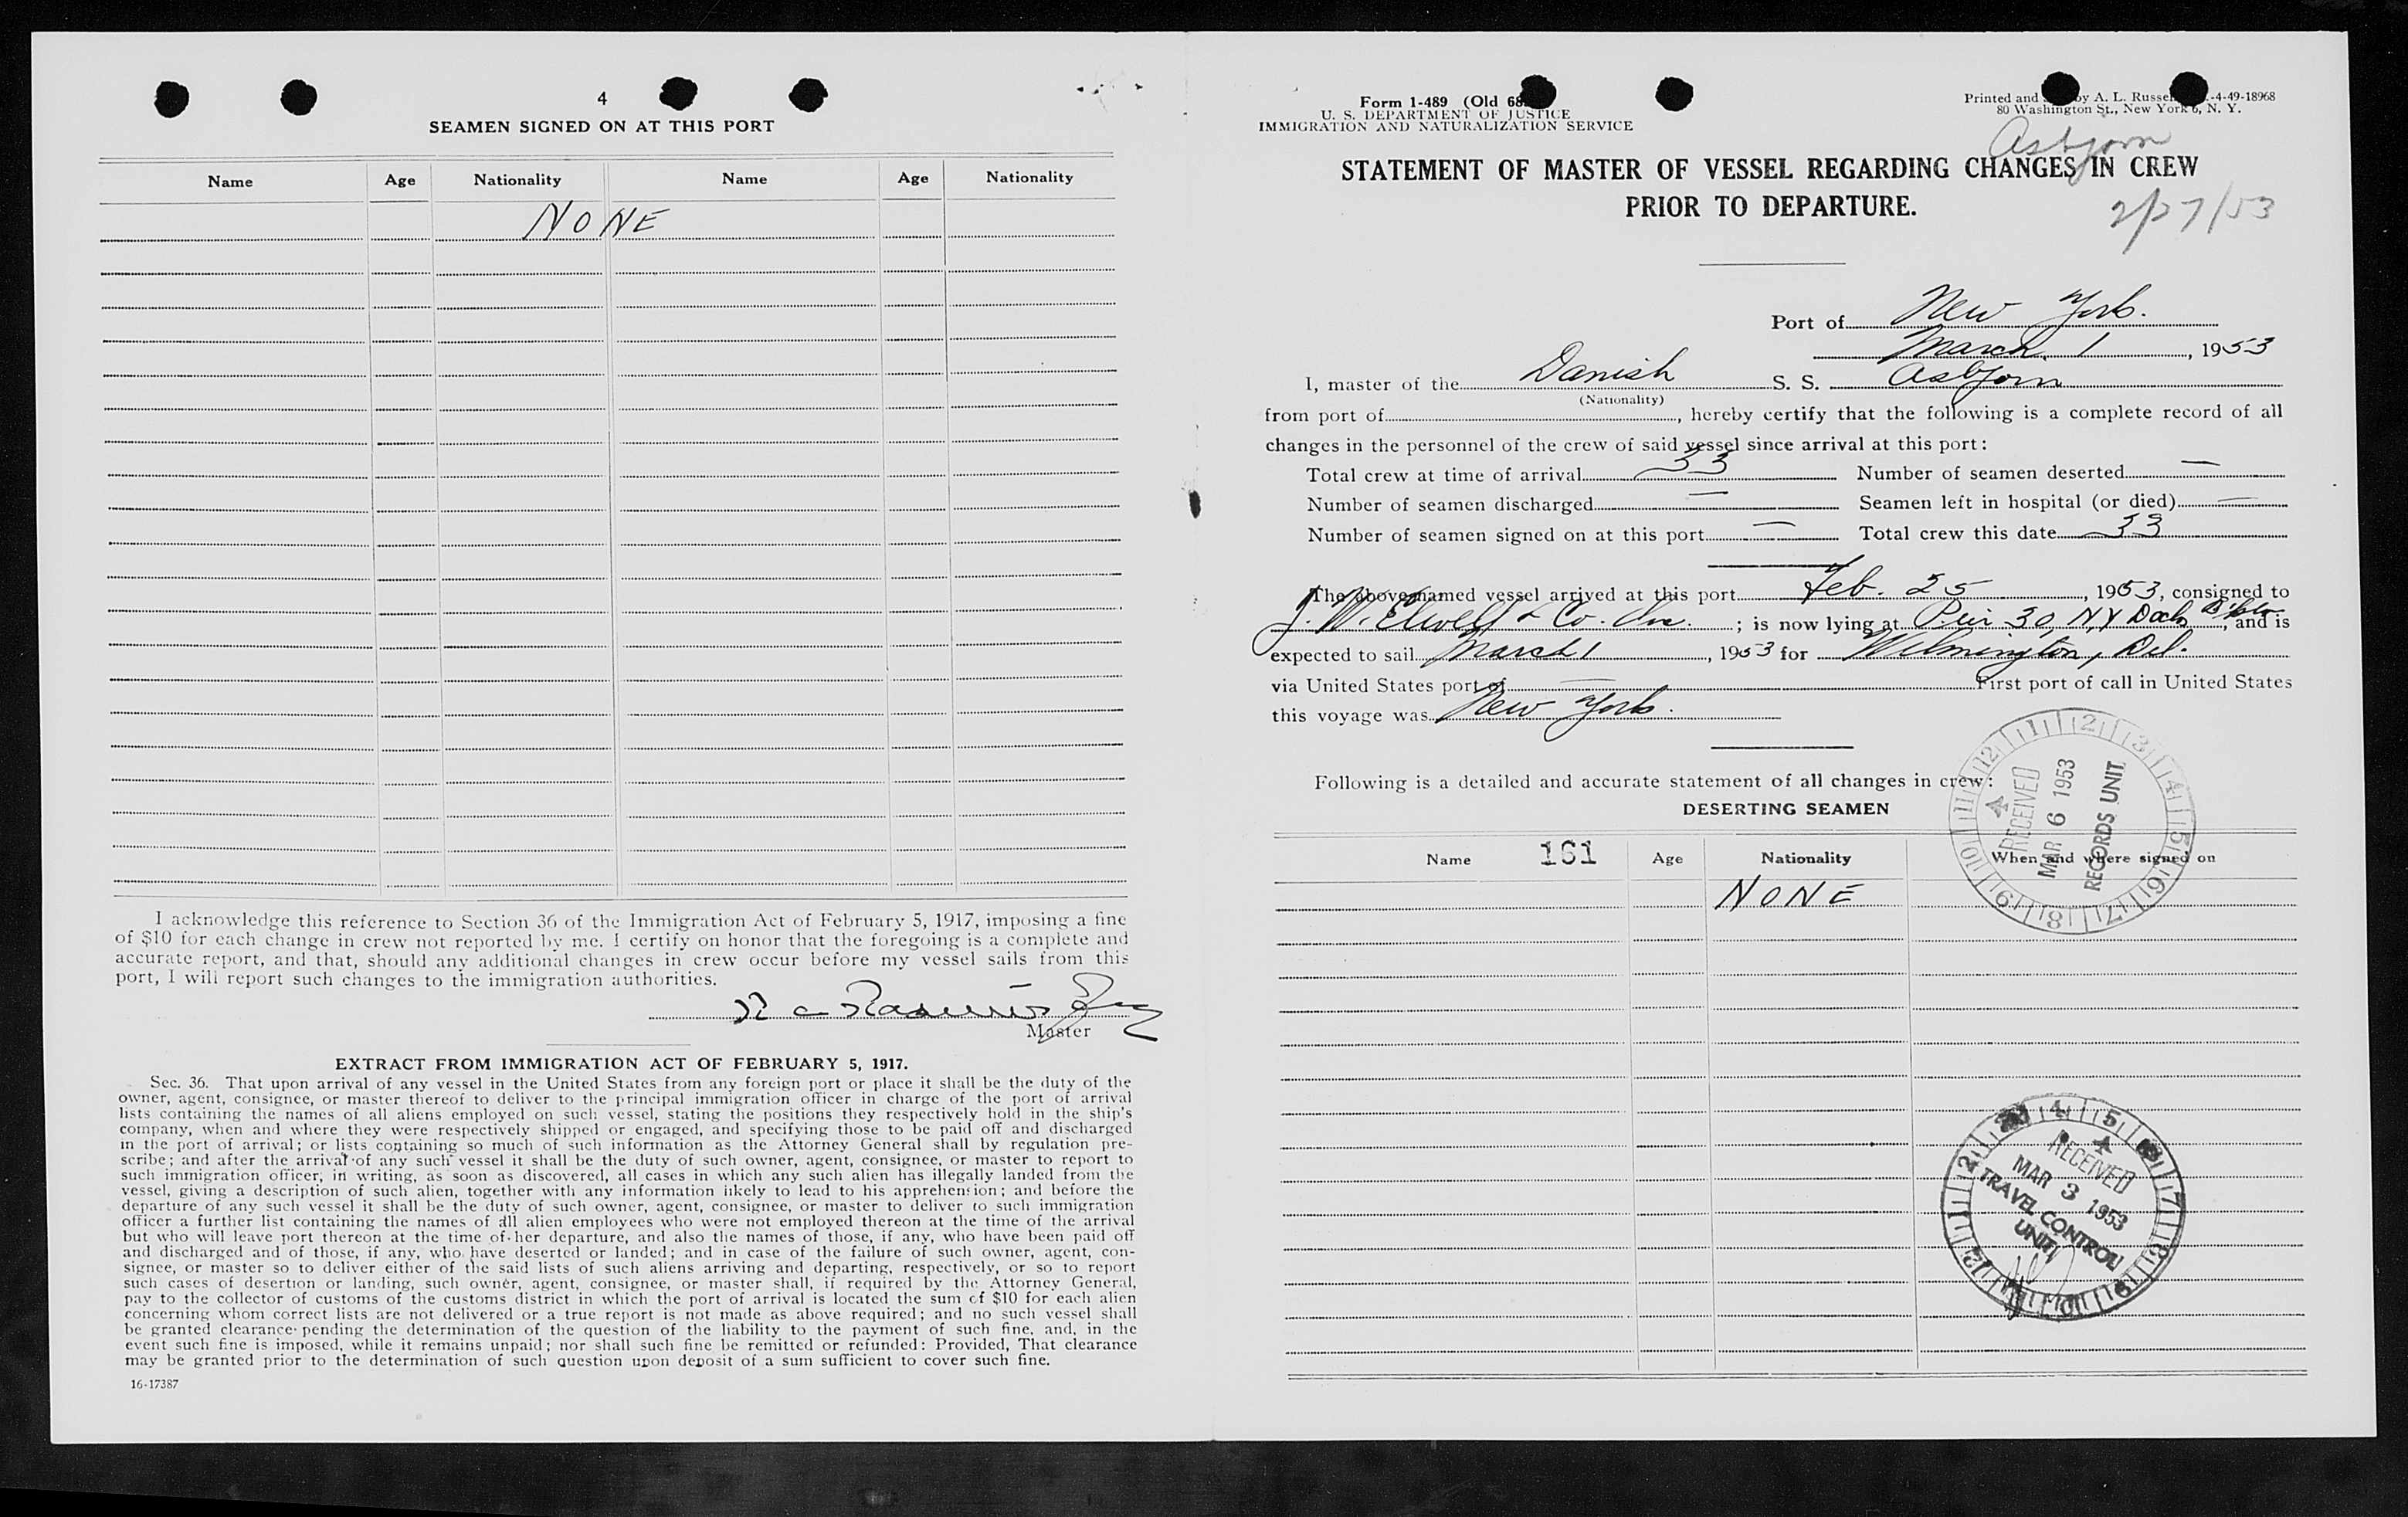 4
SEAMEN SIGNED ON AT THIS PORT
Name Age Nationality Name Age Nationality
NONE
I acknowledge this reference to Section 36 of the Immigration Act of February 5, 1917, imposing a fine
of $10 for each change in crew not reported by me. I certify on honor that the foregoing is a complete and
accurate report, and that, should any additional changes in crew occur before my vessel sails from this
port, I will report such changes to the immigration authorities.
Master
EXTRACT FROM IMMIGRATION ACT OF FEBRUARY 5, 1917.
Sec. 36. That upon arrival of any vessel in the United States from any foreign port or place it shall be the duty of the
owner, agent, consignee, or master thereof to deliver to the principal immigration officer in charge of the port of arrival
lists containing the names of all aliens employed on such vessel, stating the positions they respectively hold in the ship's
company, when and where they were respectively shipped or engaged, and specifying those to be paid off and discharged
in the port of arrival; or lists containing so much of such information as the Attorney General shall by regulation pre-
scribe; and after the arrival of any such vessel it shall be the duty of such owner, agent, consignee, or master to report to
such immigration officer, in writing, as soon as discovered, all cases in which any such alien has illegally landed from the
vessel, giving a description of such alien, together with any information likely to lead to his apprehension; and before the
departure of any such vessel it shall be the duty of such owner, agent, consignee, or master to deliver to such immigration
officer a further list containing the names of all alien employees who were not employed thereon at the time of the arrival
but who will leave port thereon at the time of her departure, and also the names of those, if any, who have been paid off
and discharged and of those, if any, who have deserted or landed; and in case of the failure of such owner, agent, con-
signee, or master so to deliver either of the said lists of such aliens arriving and departing, respectively, or so to report
such cases of desertion or landing, such owner, agent, consignee, or master shall, if required by the Attorney General,
pay to the collector of customs of the customs district in which the port of arrival is located the sum of $10 for each alien
concerning whom correct lists are not delivered or a true report is not made as above required; and no such vessel shall
be granted clearance pending the determination of the question of the liability to the payment of such fine, and, in the
event such fine is imposed, while it remains unpaid; nor shall such fine be remitted or refunded: Provided, That clearance
may be granted prior to the determination of such question upon deposit of a sum sufficient to cover such fine.
16-17387
Form 1-489 (Old 68
U. S. DEPARTMENT OF JUSTICE
IMMIGRATION AND NATURALIZATION SERVICE
Printed and by A. L. Russel -4-49-18968
80 Washington St., New York 6, N. Y.
Asbjorn
STATEMENT OF MASTER OF VESSEL REGARDING CHANGES IN CREW
PRIOR TO DEPARTURE.
2/27/53
Port of New York.
March 1, 1953
I, master of the Danish S. S. Asbjorn
(Nationality)
from port of, hereby certify that the following is a complete record of all
changes in the personnel of the crew of said vessel since arrival at this port:
Total crew at time of arrival 33 Number of seamen deserted —
Number of seamen discharged — Seamen left in hospital (or died) —
Number of seamen signed on at this port — Total crew this date 33
The above-named vessel arrived at this port Feb. 25, 1953, consigned to
J. W. Elwell & Co. Inc.; is now lying at Pier 30, NY Dock, Bkln., and is
expected to sail March 1, 1953 for Wilmington, Del.
via United States port of — First port of call in United States
this voyage was New York.
Following is a detailed and accurate statement of all changes in crew:
DESERTING SEAMEN
Name 161 Age Nationality When and where signed on
NONE
1 2 3 4 5 6 7 8 9 10 11 12
RECEIVED
MAR 6 1953
RECORDS UNIT
RECEIVED
MAR 3 1953
TRAVEL CONTROL
UNIT